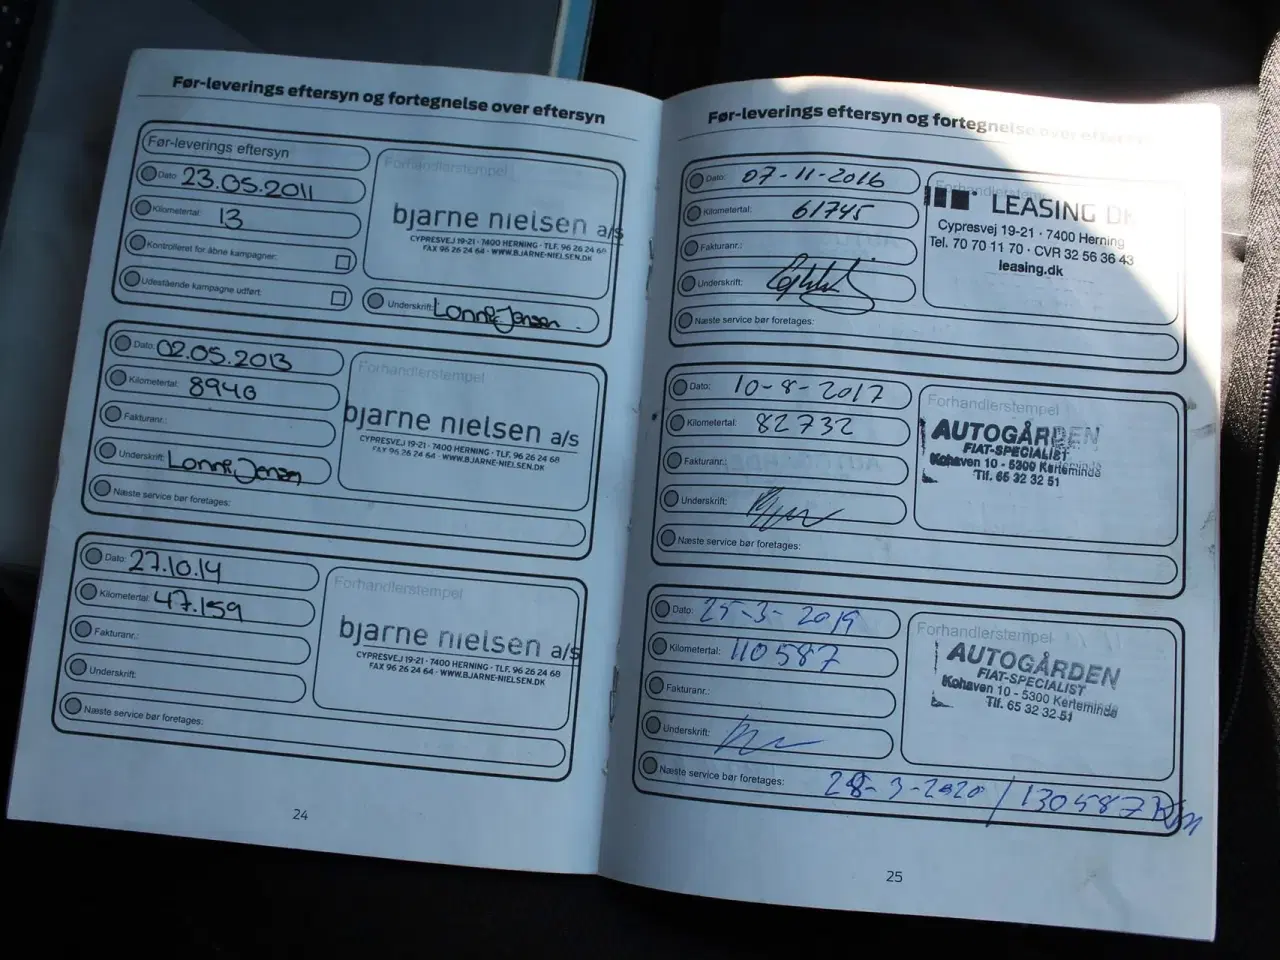 Før-leverings eftersyn og fortegnelse over eftersyn
Før-leverings eftersyn
Dato: 23.05.2011
Kilometertal: 13
Kontrolleret for åbne kampagner:
Udestående kampagne udført:
Forhandlerstempel
bjarne nielsen a/s
CYPRESVEJ 19-21 · 7400 HERNING · TLF. 96 26 24 68
FAX 96 26 24 64 · WWW.BJARNE-NIELSEN.DK
Underskrift: Lonni Jensen
Dato: 02.05.2013
Kilometertal: 8946
Fakturanr.:
Underskrift: Lonni Jensen
Næste service bør foretages:
Forhandlerstempel
bjarne nielsen a/s
CYPRESVEJ 19-21 · 7400 HERNING · TLF. 96 26 24 68
FAX 96 26 24 64 · WWW.BJARNE-NIELSEN.DK
Dato: 27.10.14
Kilometertal: 47.159
Fakturanr.:
Underskrift:
Næste service bør foretages:
Forhandlerstempel
bjarne nielsen a/s
CYPRESVEJ 19-21 · 7400 HERNING · TLF. 96 26 24 68
FAX 96 26 24 64 · WWW.BJARNE-NIELSEN.DK
24
Før-leverings eftersyn og fortegnelse over eftersyn
Dato: 07-11-2016
Kilometertal: 61745
Fakturanr.:
Underskrift:
Næste service bør foretages:
Forhandlerstempel
LEASING DK
Cypresvej 19-21 · 7400 Herning
Tel. 70 70 11 70 · CVR 32 56 36 43
leasing.dk
Dato: 10-8-2017
Kilometertal: 82732
Fakturanr.:
Underskrift:
Næste service bør foretages:
Forhandlerstempel
AUTOGÅRDEN
FIAT-SPECIALIST
Kohaven 10 - 5300 Kerteminde
Tlf. 65 32 32 51
Dato: 25-3-2019
Kilometertal: 110587
Fakturanr.:
Underskrift:
Næste service bør foretages: 28-3-2020 / 130587 Km
Forhandlerstempel
AUTOGÅRDEN
FIAT-SPECIALIST
Kohaven 10 - 5300 Kerteminde
Tlf. 65 32 32 51
25